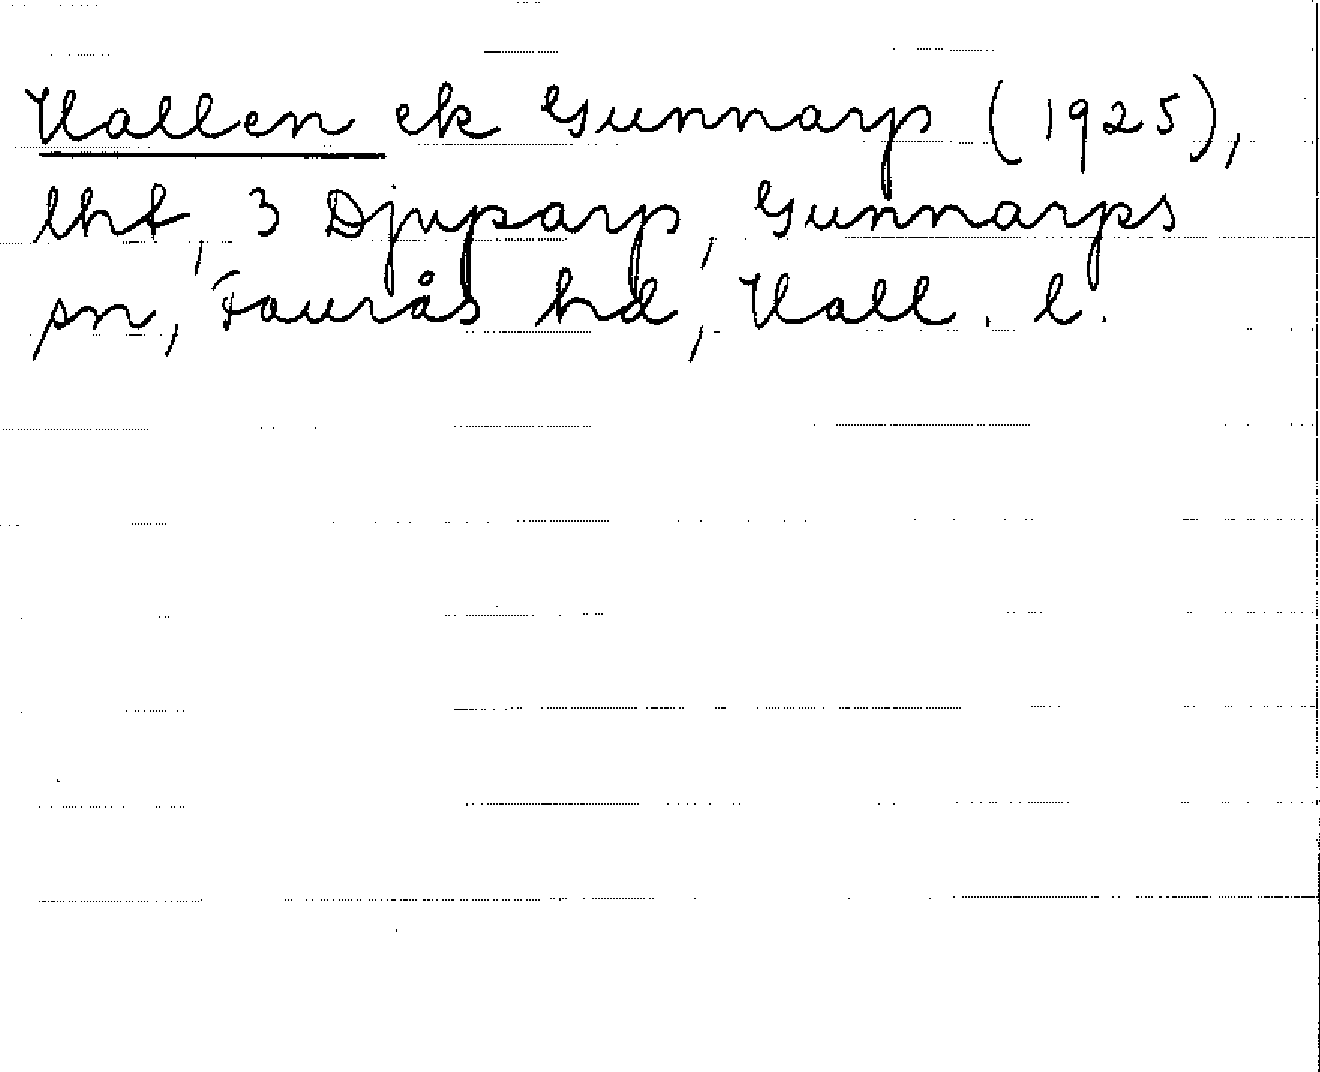 Hallen ek Gunnarp (1925),
lht, 3 Djuparp, Gunnarps
sn, Faurås hd, Hall. l.